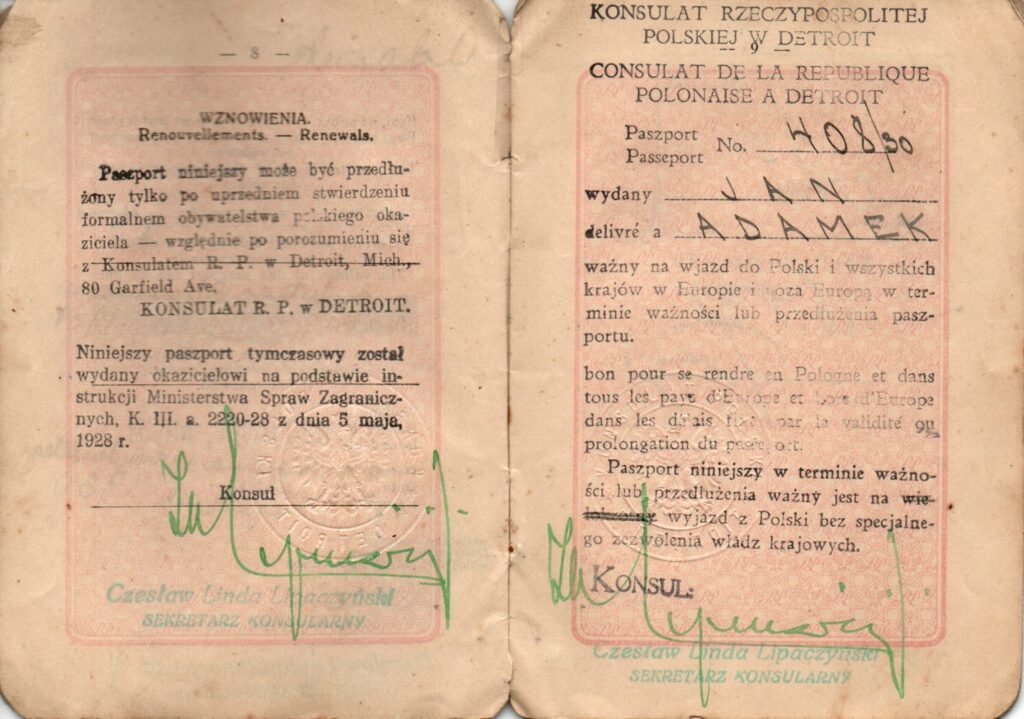 — 8 —
WZNOWIENIA.
Renouvellements. — Renewals.
Paszport niniejszy może być przedłu-
żony tylko po uprzedniem stwierdzeniu
formalnem obywatelstwa polskiego oka-
ziciela — względnie po porozumieniu się
z Konsulatem R. P. w Detroit, Mich.,
80 Garfield Ave.
KONSULAT R. P. w DETROIT.
Niniejszy paszport tymczasowy został
wydany okazicielowi na podstawie in-
strukcji Ministerstwa Spraw Zagranicz-
nych, K. III. a. 2220-28 z dnia 5 maja,
1928 r.
Konsul
Czesław Linda Lipaczyński
SEKRETARZ KONSULARNY
KONSULAT RZECZYPOSPOLITEJ
POLSKIEJ W DETROIT
— 9 —
CONSULAT DE LA REPUBLIQUE
POLONAISE A DETROIT
Paszport
Passeport No. 408/30
wydany JAN
delivré a ADAMEK
ważny na wjazd do Polski i wszystkich
krajów w Europie i poza Europą w ter-
minie ważności lub przedłużenia pasz-
portu.
bon pour se rendre en Pologne et dans
tous les pays d'Europe et hors d'Europe
dans les délais fixés par la validité ou
prolongation du passeport.
Paszport niniejszy w terminie ważno-
ści lub przedłużenia ważny jest na wie-
lokrotny wyjazd z Polski bez specjalne-
go zezwolenia władz krajowych.
KONSUL:
Czesław Linda Lipaczyński
SEKRETARZ KONSULARNY